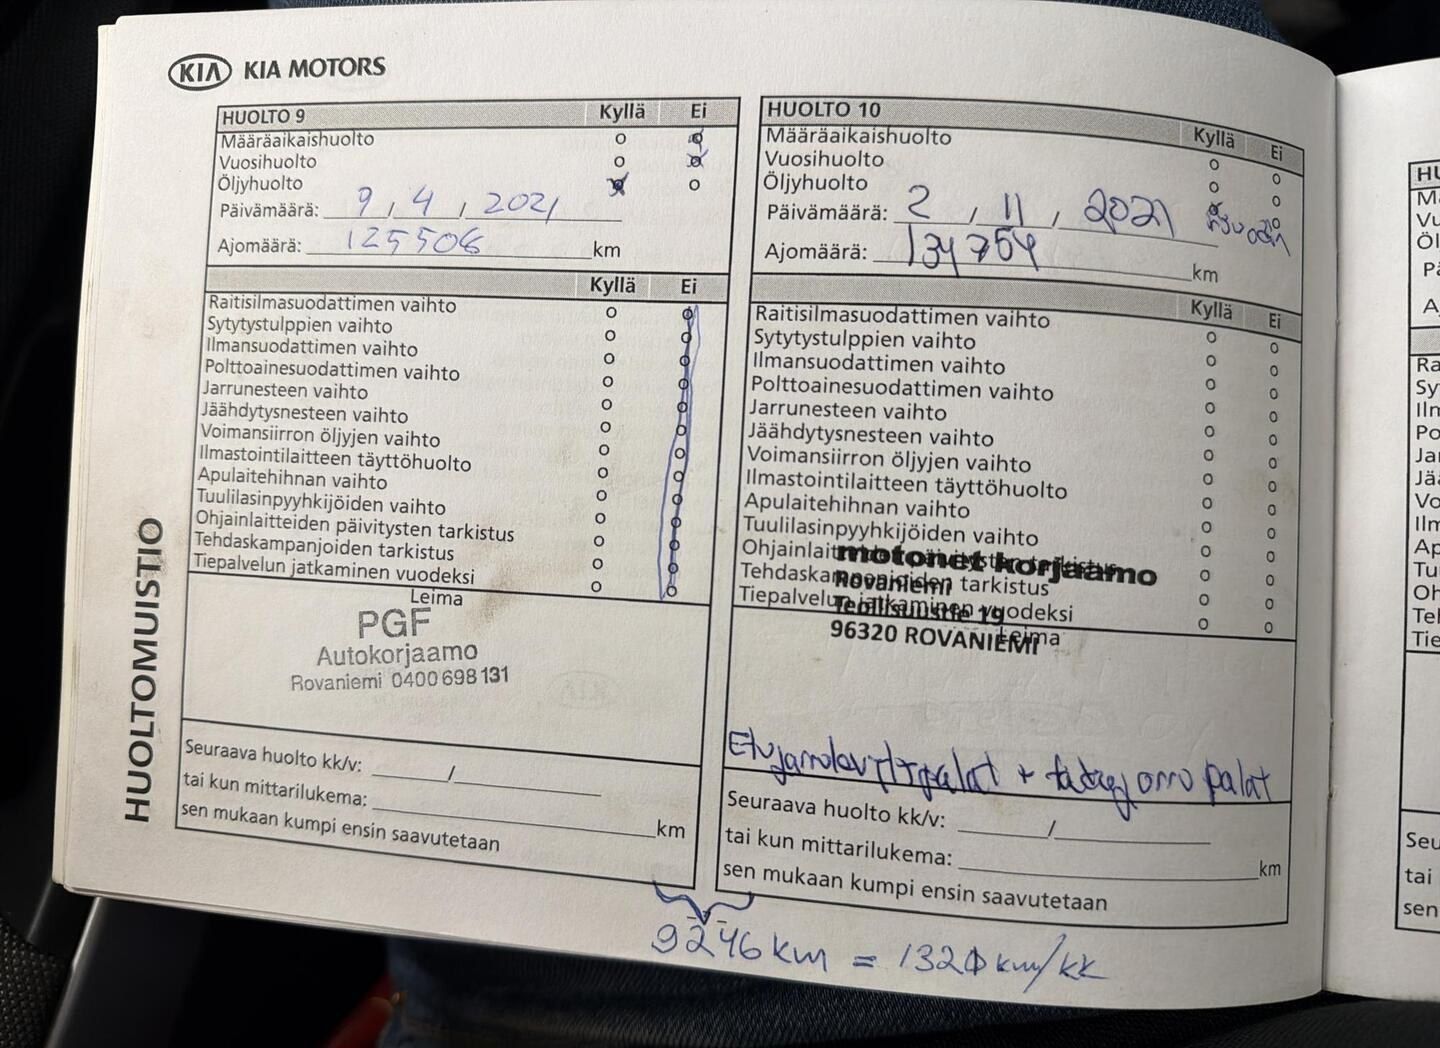 KIA KIA MOTORS
HUOLTOMUISTIO
HUOLTO 9 Kyllä Ei
Määräaikaishuolto o o
Vuosihuolto o o
Öljyhuolto o o
Päivämäärä: 9 / 4 / 2021
Ajomäärä: 125508 km
Kyllä Ei
Raitisilmasuodattimen vaihto o o
Sytytystulppien vaihto o o
Ilmansuodattimen vaihto o o
Polttoainesuodattimen vaihto o o
Jarrunesteen vaihto o o
Jäähdytysnesteen vaihto o o
Voimansiirron öljyjen vaihto o o
Ilmastointilaitteen täyttöhuolto o o
Apulaitehihnan vaihto o o
Tuulilasinpyyhkijöiden vaihto o o
Ohjainlaitteiden päivitysten tarkistus o o
Tehdaskampanjoiden tarkistus o o
Tiepalvelun jatkaminen vuodeksi o o
Leima
PGF
Autokorjaamo
Rovaniemi 0400 698 131
Seuraava huolto kk/v: /
tai kun mittarilukema: km
sen mukaan kumpi ensin saavutetaan
HUOLTO 10 Kyllä Ei
Määräaikaishuolto o o
Vuosihuolto o o
Öljyhuolto o
Päivämäärä: 2 / 11 / 2021
Ajomäärä: 134754 km
Kyllä Ei
Raitisilmasuodattimen vaihto o o
Sytytystulppien vaihto o o
Ilmansuodattimen vaihto o o
Polttoainesuodattimen vaihto o o
Jarrunesteen vaihto o o
Jäähdytysnesteen vaihto o o
Voimansiirron öljyjen vaihto o o
Ilmastointilaitteen täyttöhuolto o o
Apulaitehihnan vaihto o o
Tuulilasinpyyhkijöiden vaihto o o
Ohjainlaitteiden päivitysten tarkistus o o
Tehdaskampanjoiden tarkistus o o
Tiepalvelun jatkaminen vuodeksi o o
Leima
motonet korjaamo
Rovaniemi
Teollisuustie 19
96320 ROVANIEMI
+ palat
Seuraava huolto kk/v: /
tai kun mittarilukema: km
sen mukaan kumpi ensin saavutetaan
9246 km = 1320 km/kk